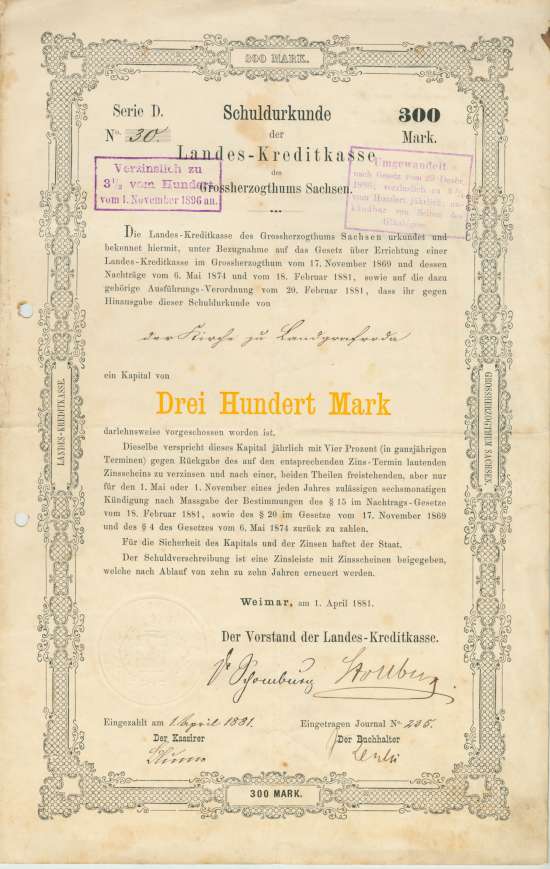 300 MARK.
Serie D.
Schuldurkunde
300
No. 30.
der
Mark.
Landes-Kreditkasse
des
Grossherzogthums Sachsen.
Verzinslich zu
3 1/2 vom Hundert
vom 1. November 1896 an.
Umgewandelt
nach Gesetz vom
1896; verzinslich zu 3
vom Hundert jährlich; un-
kündbar von Seiten des
Gläubigers.
Die Landes-Kreditkasse des Grossherzogthums Sachsen urkundet und
bekennet hiermit, unter Bezugnahme auf das Gesetz über Errichtung einer
Landes-Kreditkasse im Grossherzogthum vom 17. November 1869 und dessen
Nachträge vom 6. Mai 1874 und vom 18. Februar 1881, sowie auf die dazu
gehörige Ausführungs-Verordnung vom 20. Februar 1881, dass ihr gegen
Hinausgabe dieser Schuldurkunde von
der Kirche zu Landgrafroda
ein Kapital von
Drei Hundert Mark
darlehnsweise vorgeschossen worden ist.
Dieselbe verspricht dieses Kapital jährlich mit Vier Prozent (in ganzjährigen
Terminen) gegen Rückgabe des auf den entsprechenden Zins-Termin lautenden
Zinsscheins zu verzinsen und nach einer, beiden Theilen freistehenden, aber nur
für den 1. Mai oder 1. November eines jeden Jahres zulässigen sechsmonatigen
Kündigung nach Massgabe der Bestimmungen des § 15 im Nachtrags-Gesetze
vom 18. Februar 1881, sowie des § 20 im Gesetze vom 17. November 1869
und des § 4 des Gesetzes vom 6. Mai 1874 zurück zu zahlen.
Für die Sicherheit des Kapitals und der Zinsen haftet der Staat.
Der Schuldverschreibung ist eine Zinsleiste mit Zinsscheinen beigegeben,
welche nach Ablauf von zehn zu zehn Jahren erneuert werden.
Weimar, am 1. April 1881.
Der Vorstand der Landes-Kreditkasse.
Dr Schomburg Stollberg
Eingezahlt am 1 April 1881.
Eingetragen Journal No. 205.
Der Kassirer
Der Buchhalter
LANDES-KREDITKASSE.
GROSSHERZOGTHUM SACHSEN.
300 MARK.